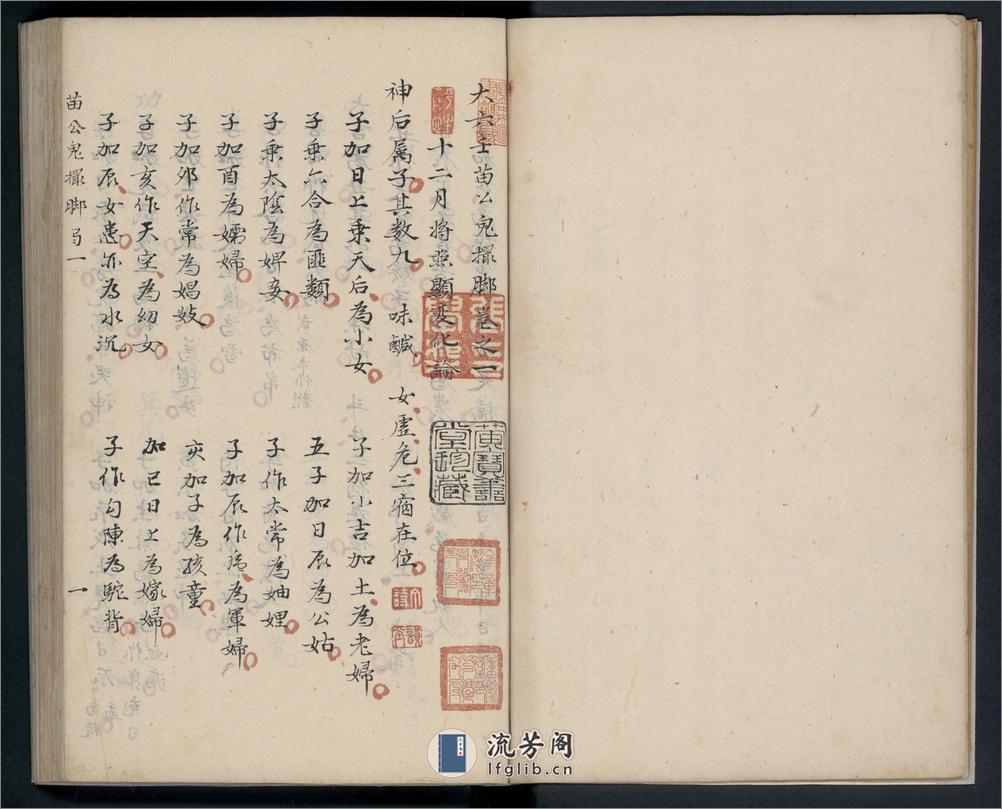 大六壬苗公鬼撮脚卷之一
十二月将照顯变化論
神后属子其数九味鹹 女虚危三宿在位
子加日上乗天后為小女 子加小吉加土為老婦
子乗六合為匪類 五子加日辰為公姑
子乗太陰為婢妾 子作太常為妯娌
子加酉為孀婦 子加辰作為軍婦
子加卯作常為娼妓 亥加子為孩童
子加亥作天空為幼女 加已日上為嫁婦
子加辰女患亦為水沉 子作勾陳為駝背
苗公鬼撮脚局一 一
黄寶善堂珍藏
流芳阁
lfglib.cn